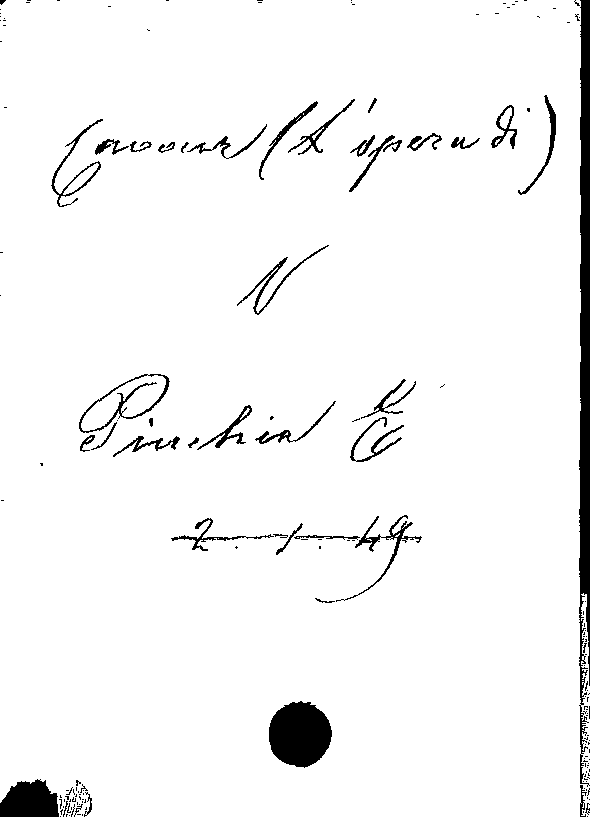 Cavour (L'opera di)
V
Pinchia E
2.1.49